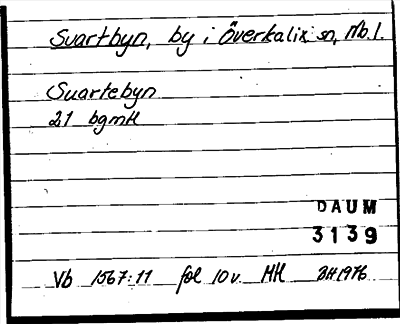 Svartbyn, by i Överkalix sn, Nb. l.
Suartebyn
21 bgmH
DAUM
3139
Vb 1567:11 fol 10v. MH BH 1976